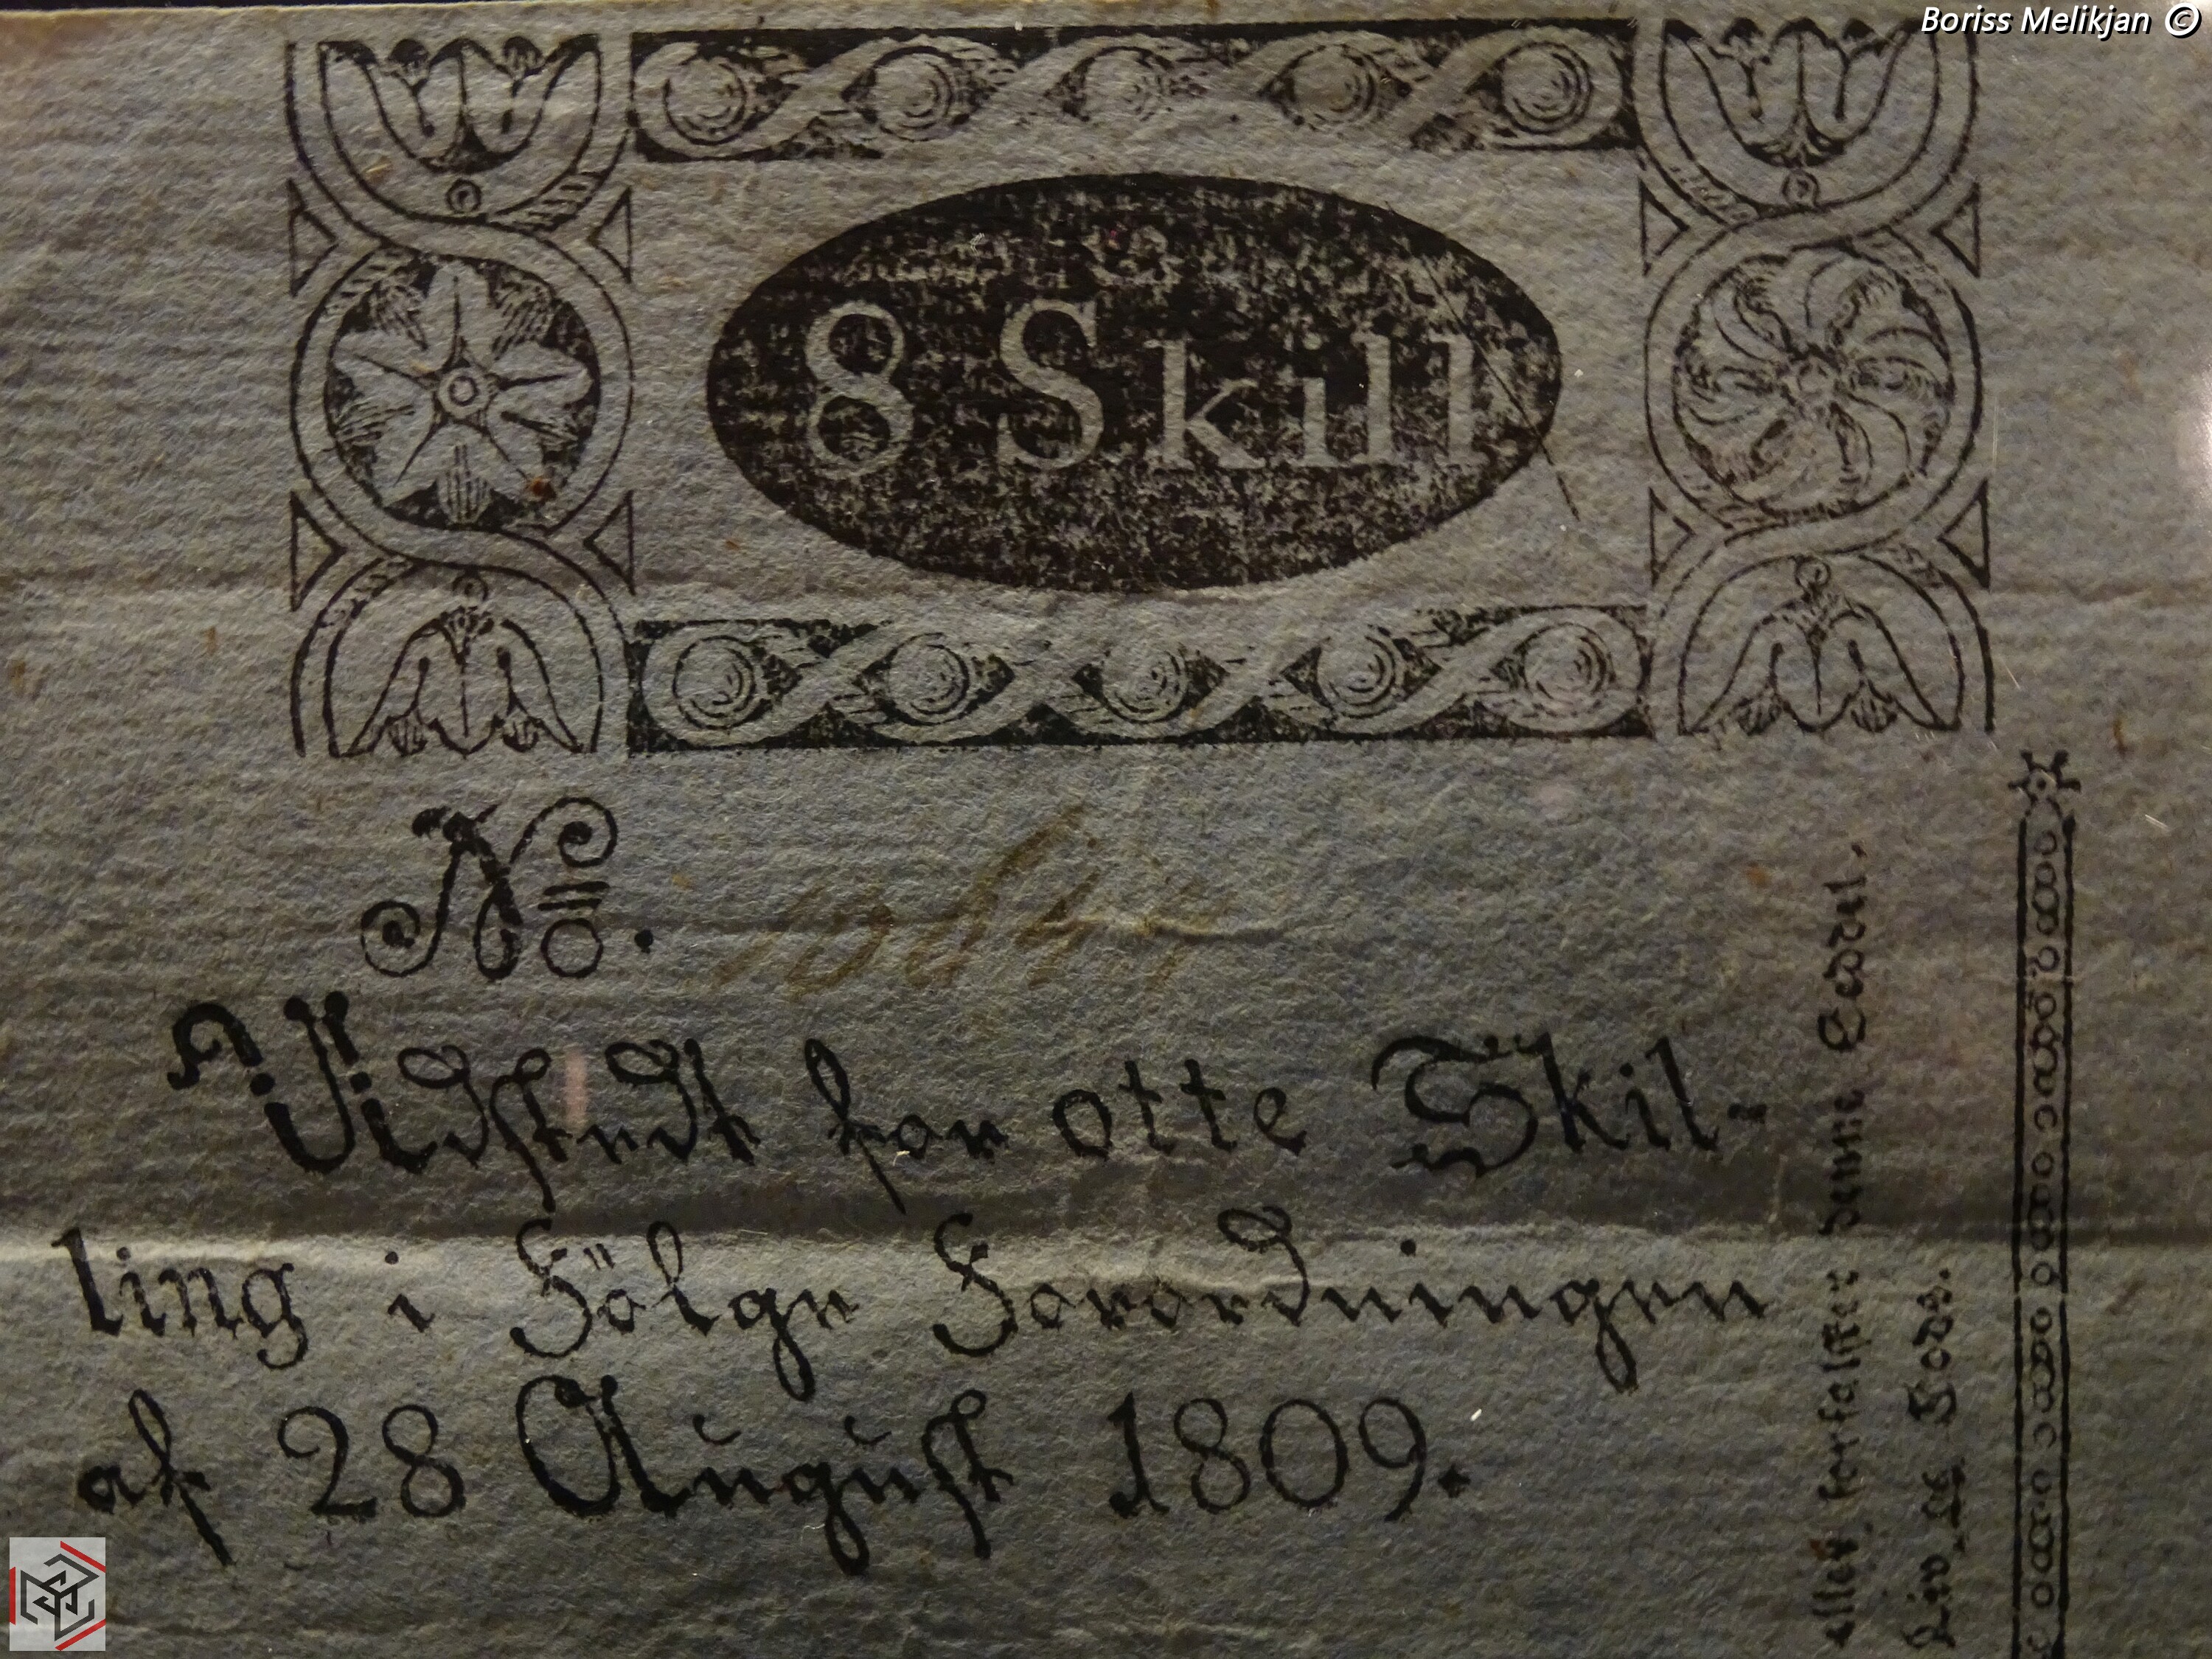 Boriss Melikjan ©
8 Skill.
No.
Udstedt for otte Skil-
ling i Fölge Forordningen
af 28 August 1809.
eller forfalsker denne Seddel,
Liv og Gods.